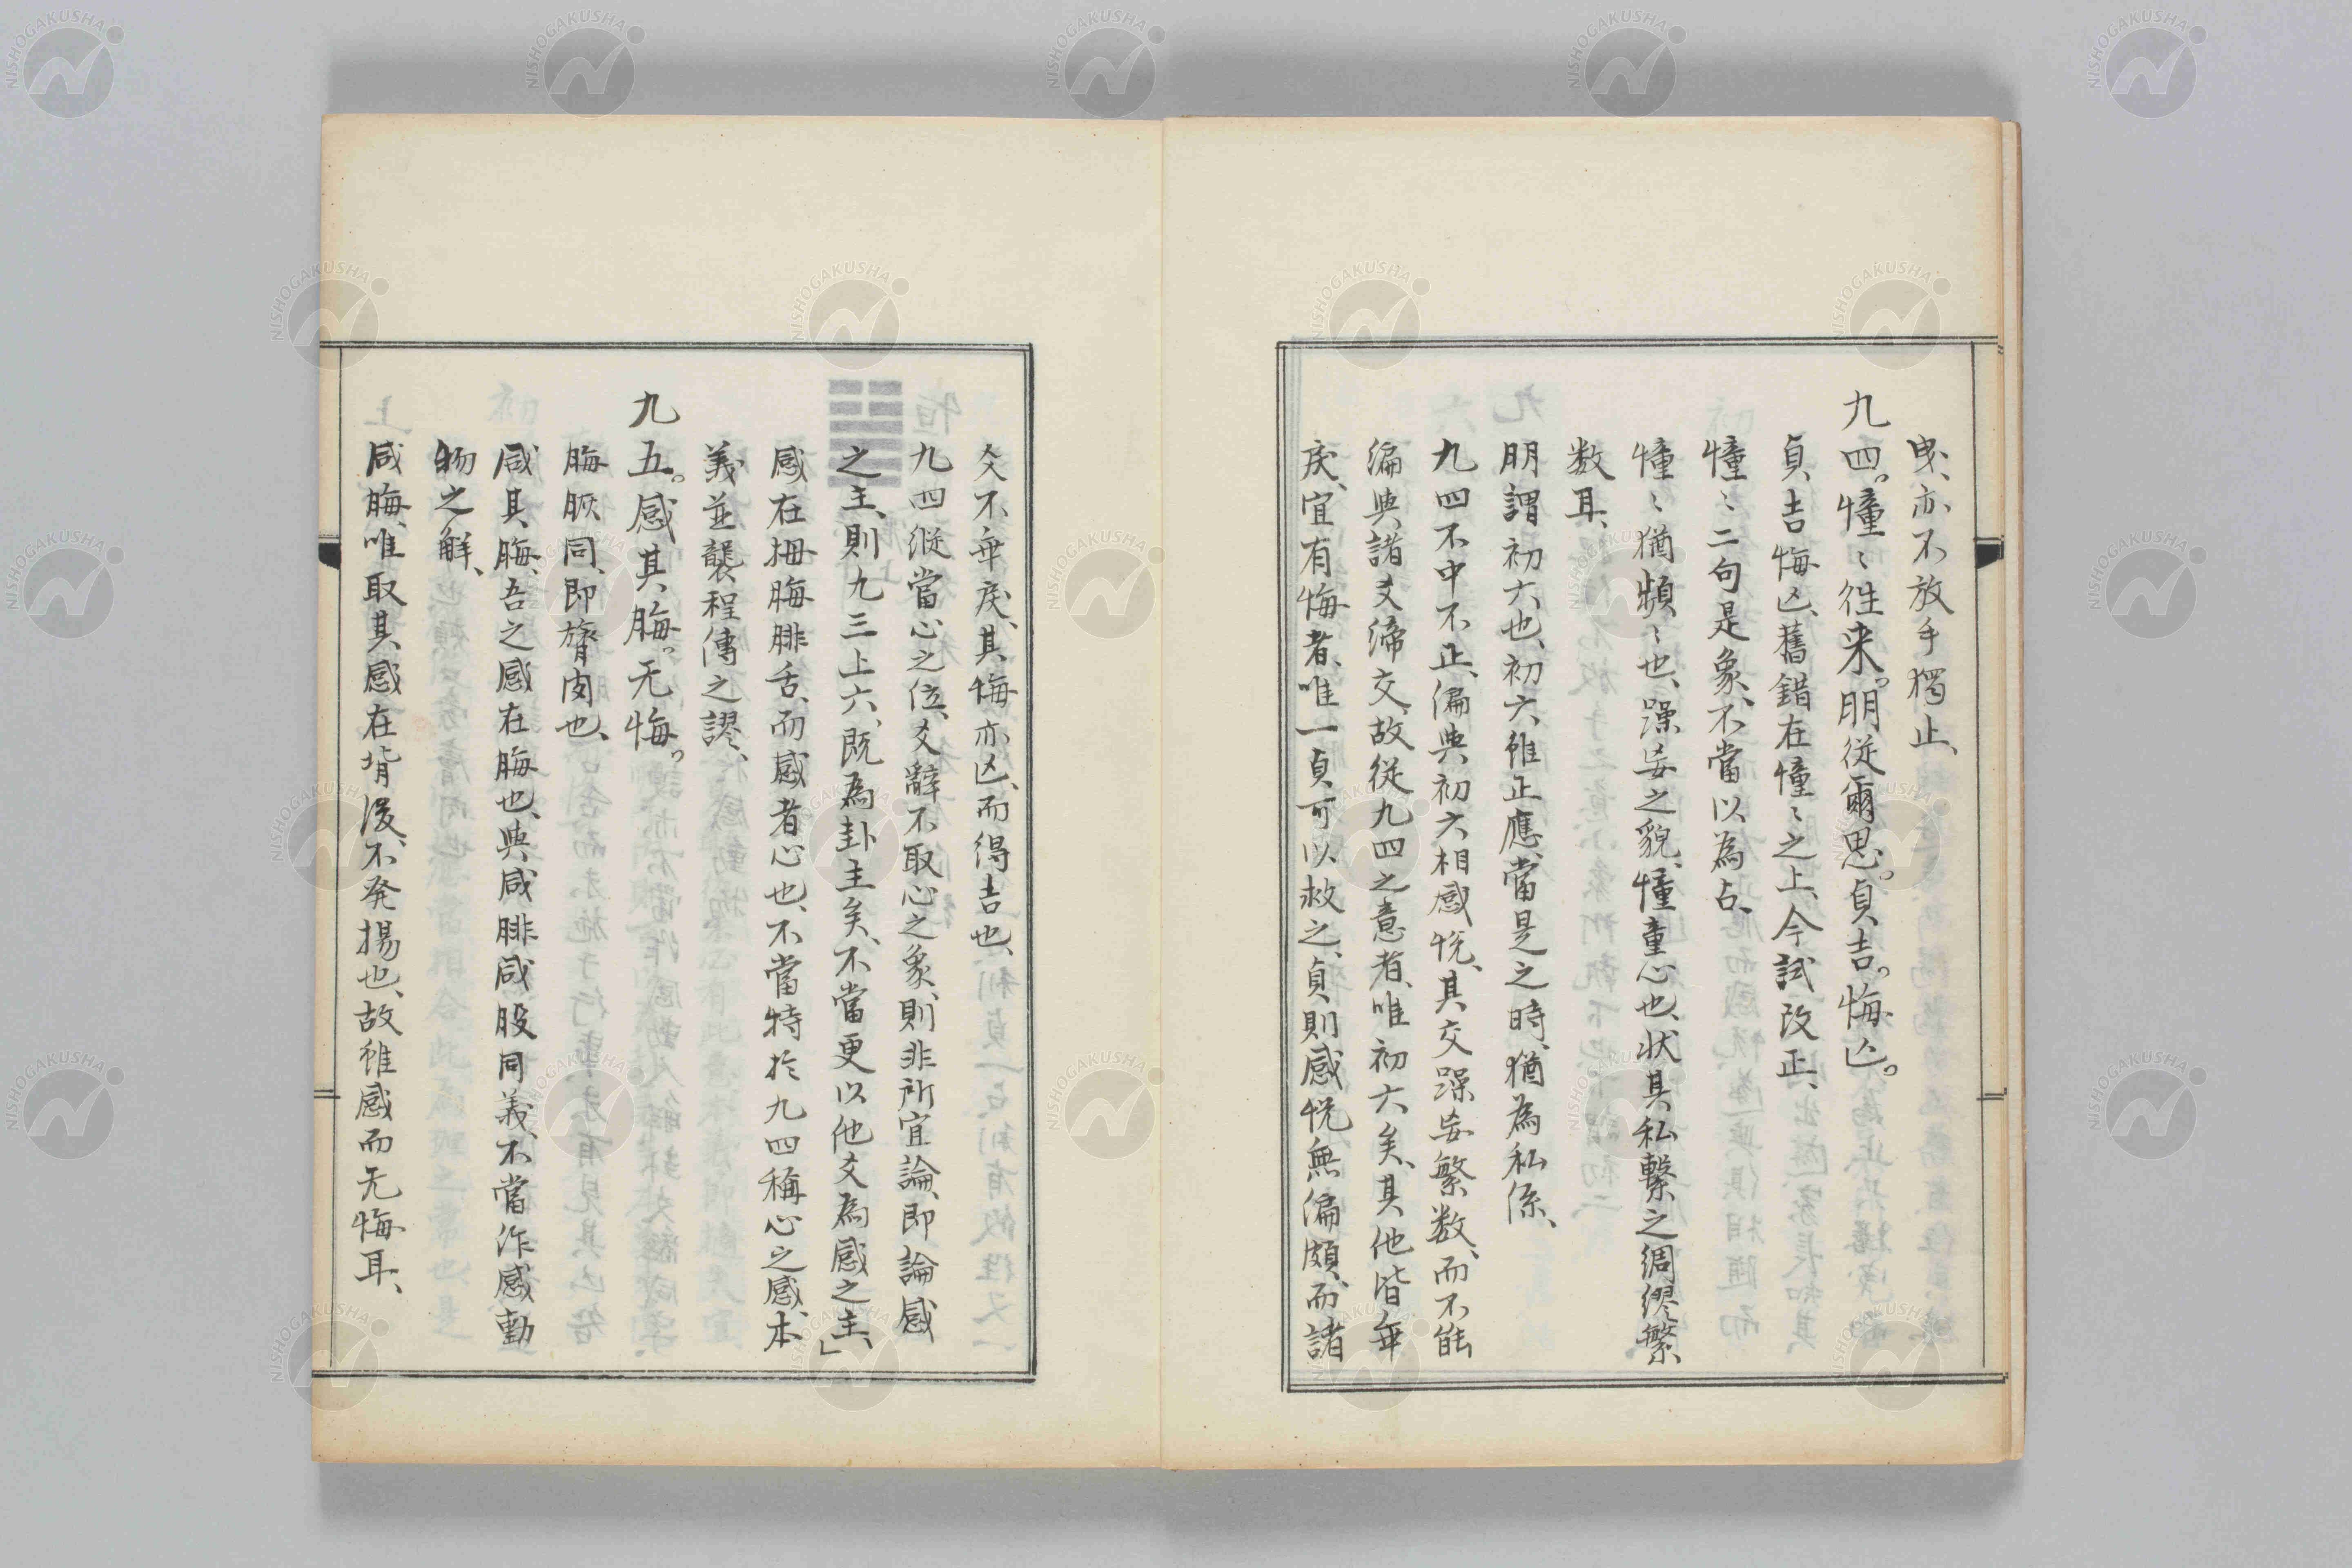 曳、亦不放手獨止、
九四。憧〻往来。朋従爾思。貞、吉。悔亾。
貞、吉悔亾、舊錯在憧〻之上、今試改正、
憧〻二句是象、不當以為占、
憧〻猶頻〻也、躁妄之貌、憧童心也、状其私繫之綢繆繁
数耳、
朋謂初六也、初六雖正應、當是之時、猶為私係、
九四不中不正、偏與初六相感悦、其交躁妄繁数、而不能
編與諸爻締交、故従九四之意者、唯初六矣、其他皆無
戻、宜有悔者、唯一貞可以救之、貞則感悦無偏頗、而諸
爻不無戻、其悔亦亾、而得吉也、
九四縱當心之位、爻辭不取心之象、則非所宜論、即論感
之主、則九三上六、既為卦主矣、不當更以他爻為感之主、」
感在拇脢腓舌、而感者心也、不當特於九四稱心之感、本
義並襲程傳之謬、
九五。感其脢。无悔。
脢脄同、即膂肉也、
咸其脢、吾之感在脢也、與咸腓咸股同義、不當作感動
物之解、
咸脢、唯取其感在背後、不発揚也、故雖感而无悔耳、
NISHOGAKUSHA